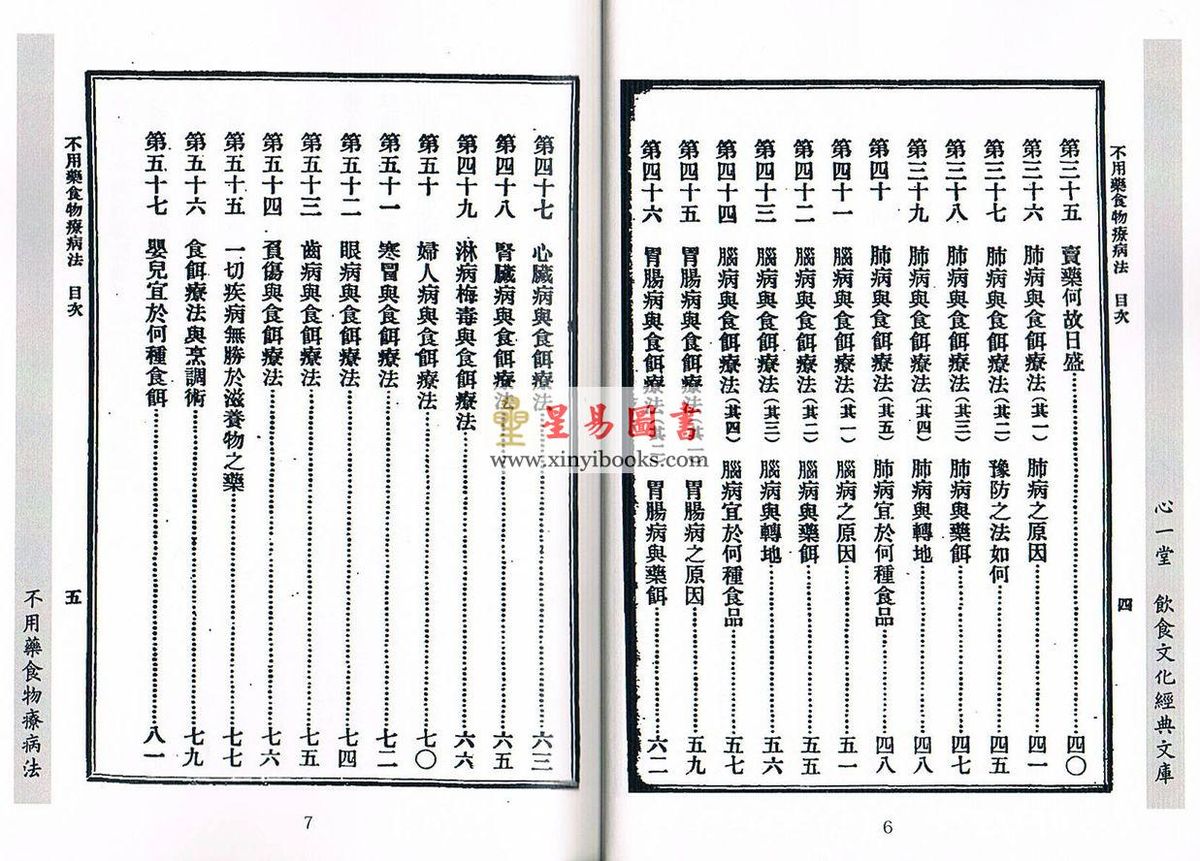 心一堂 飲食文化經典文庫
不用藥食物療病法 目次 四
第三十五 賣藥何故日盛 四〇
第三十六 肺病與食餌療法(其一) 肺病之原因 四一
第三十七 肺病與食餌療法(其二) 豫防之法如何 四五
第三十八 肺病與食餌療法(其三) 肺病與藥餌 四七
第三十九 肺病與食餌療法(其四) 肺病與轉地 四八
第四十 肺病與食餌療法(其五) 肺病宜於何種食品 四八
第四十一 腦病與食餌療法(其一) 腦病之原因 五一
第四十二 腦病與食餌療法(其二) 腦病與藥餌 五五
第四十三 腦病與食餌療法(其三) 腦病與轉地 五六
第四十四 腦病與食餌療法(其四) 腦病宜於何種食品 五七
第四十五 胃腸病與食餌療法(其一) 胃腸病之原因 五九
第四十六 胃腸病與食餌療法(其二) 胃腸病與藥餌 六二
6
第四十七 心臟病與食餌療法 六三
第四十八 腎臟病與食餌療法 六五
第四十九 淋病梅毒與食餌療法 六六
第五十 婦人病與食餌療法 七〇
第五十一 寒冒與食餌療法 七二
第五十二 眼病與食餌療法 七四
第五十三 齒病與食餌療法 七五
第五十四 負傷與食餌療法 七六
第五十五 一切疾病無勝於滋養物之藥 七七
第五十六 食餌療法與烹調術 七九
第五十七 嬰兒宜於何種食餌 八一
不用藥食物療病法 目次 五
不用藥食物療病法
7
星易圖書
www.xinyibooks.com